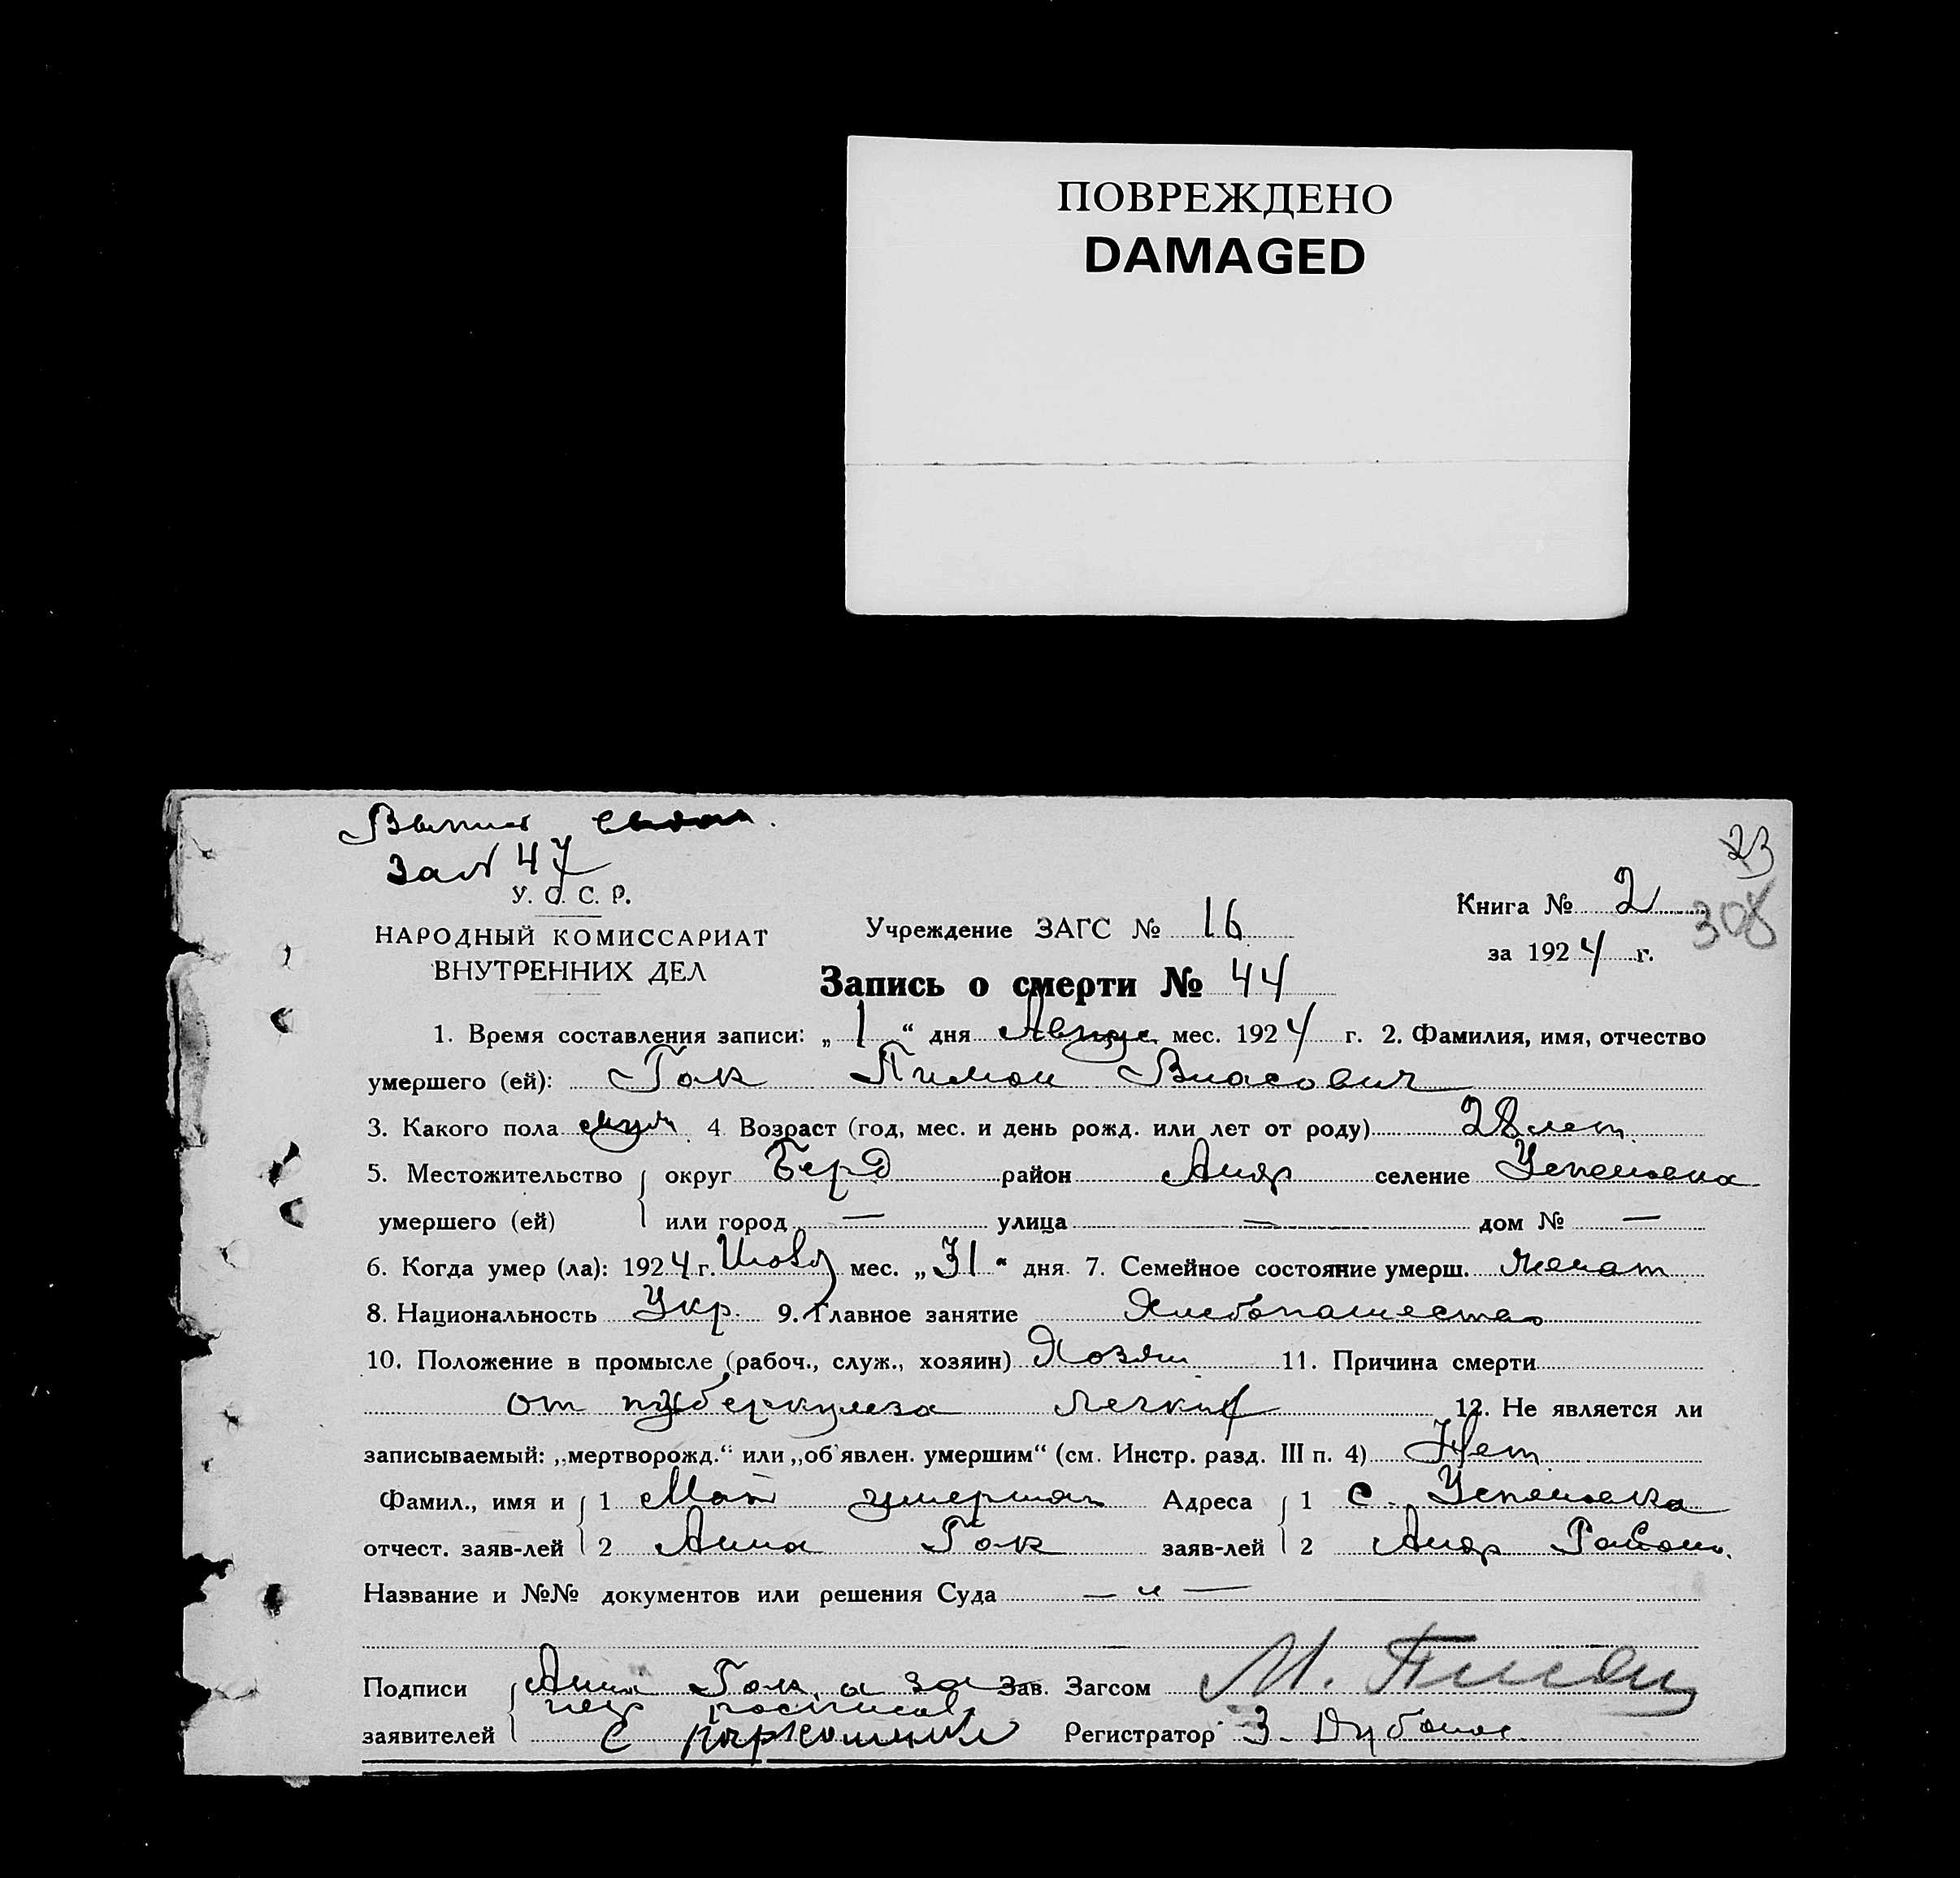 ПОВРЕЖДЕНО
DAMAGED
За № 47
23
У. С. С. Р.
308
НАРОДНЫЙ КОМИССАРИАТ
ВНУТРЕННИХ ДЕЛ
Учреждение ЗАГС № 16
Книга № 2
за 1924 г.
Запись о смерти № 44
1. Время составления записи: „ 1 “ дня Авгус. мес. 1924 г. 2. Фамилия, имя, отчество
умершего (ей): Гок Пимон Власович
3. Какого пола муж. 4 Возраст (год, мес. и день рожд. или лет от роду) 28 лет.
5. Местожительство округ Берд район Андр селение Успеновка
умершего (ей) или город — улица — дом № —
6. Когда умер (ла): 1924 г. мес. „31“ дня. 7. Семейное состояние умерш. женат
8. Национальность Укр. 9. Главное занятие Хлебопашество
10. Положение в промысле (рабоч., служ., хозяин) Хозяин 11. Причина смерти
от туберкулеза легких 12. Не является ли
записываемый: „мертворожд.“ или „об'явлен. умершим“ (см. Инстр. разд. III п. 4) Нет
Фамил., имя и 1 Мать умершаго Адреса 1 с. Успеновка
отчест. заяв-лей 2 Анна Гок заяв-лей 2 Андр Района.
Название и №№ документов или решения Суда — „ —
Подписи Анна Гок, а за Зав. Загсом М.
заявителей Регистратор З.